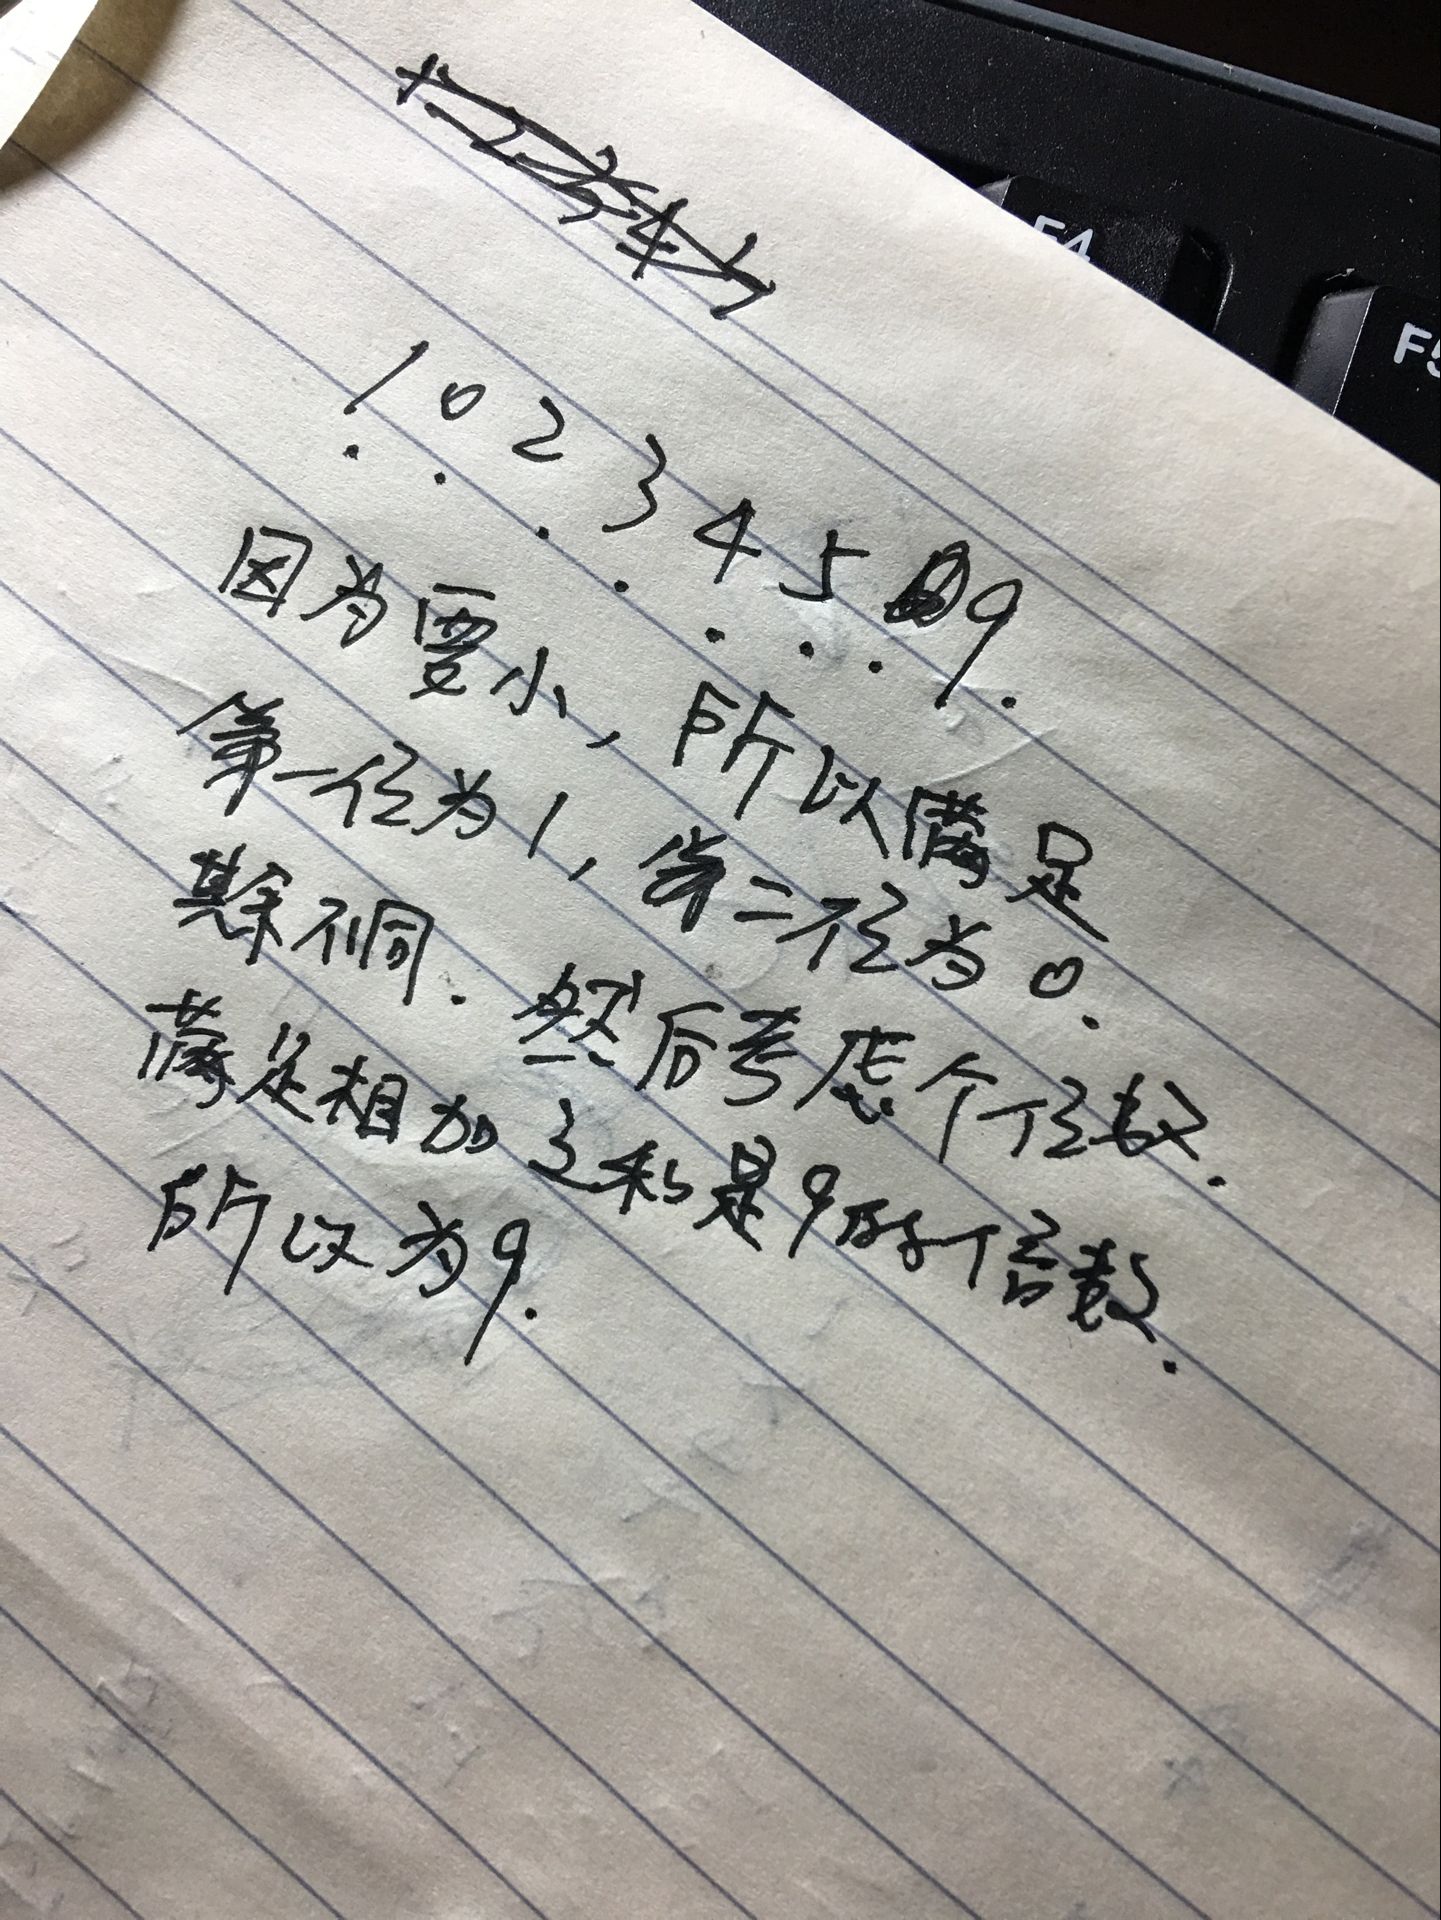 F4
F5
1 0 2 3 4 5 9.
因为要小,所以满足
第一位为1,第二位为0.
其余不同.然后考虑个位数.
满足相加之和是9的倍数.
所以为9.